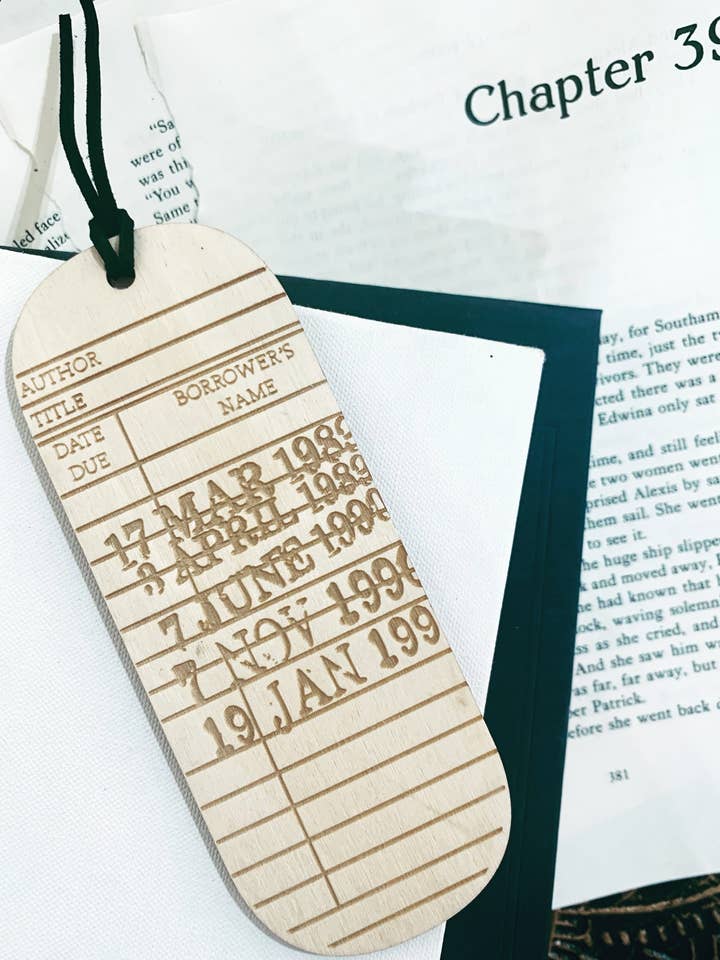 Chapter 39
"Sa
were of
was thi
"You w
Same
led face
alize
AUTHOR
TITLE
DATE DUE
BORROWER'S NAME
17 MAR 1989
3 APRIL 1989
7 JUNE 1990
7 NOV 1990
19 JAN 199
ay, for Southam
time, just the t
ivors. They were
cted there was a
Edwina only sat
ime, and still feeli
e two women went
prised Alexis by sa
hem sail. She went
to see it.
he huge ship slippe
k and moved away,
he had known that
ock, waving solemn
ss as she cried, and
And she saw him w
as far, far away, but
er Patrick.
efore she went back
381